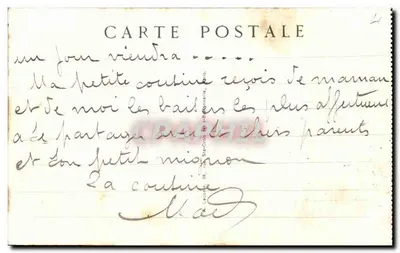 CARTE POSTALE
un jour viendra .....
Ma petite cousine reçois de maman
et de moi les baisers les plus affectueux
a se partager avec tes chers parents
et ton petit mignon
Ta cousine